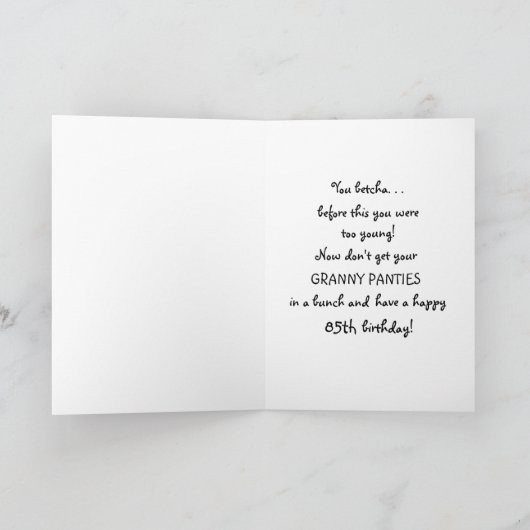 You betcha. . .
before this you were
too young!
Now don't get your
GRANNY PANTIES
in a bunch and have a happy
85th birthday!